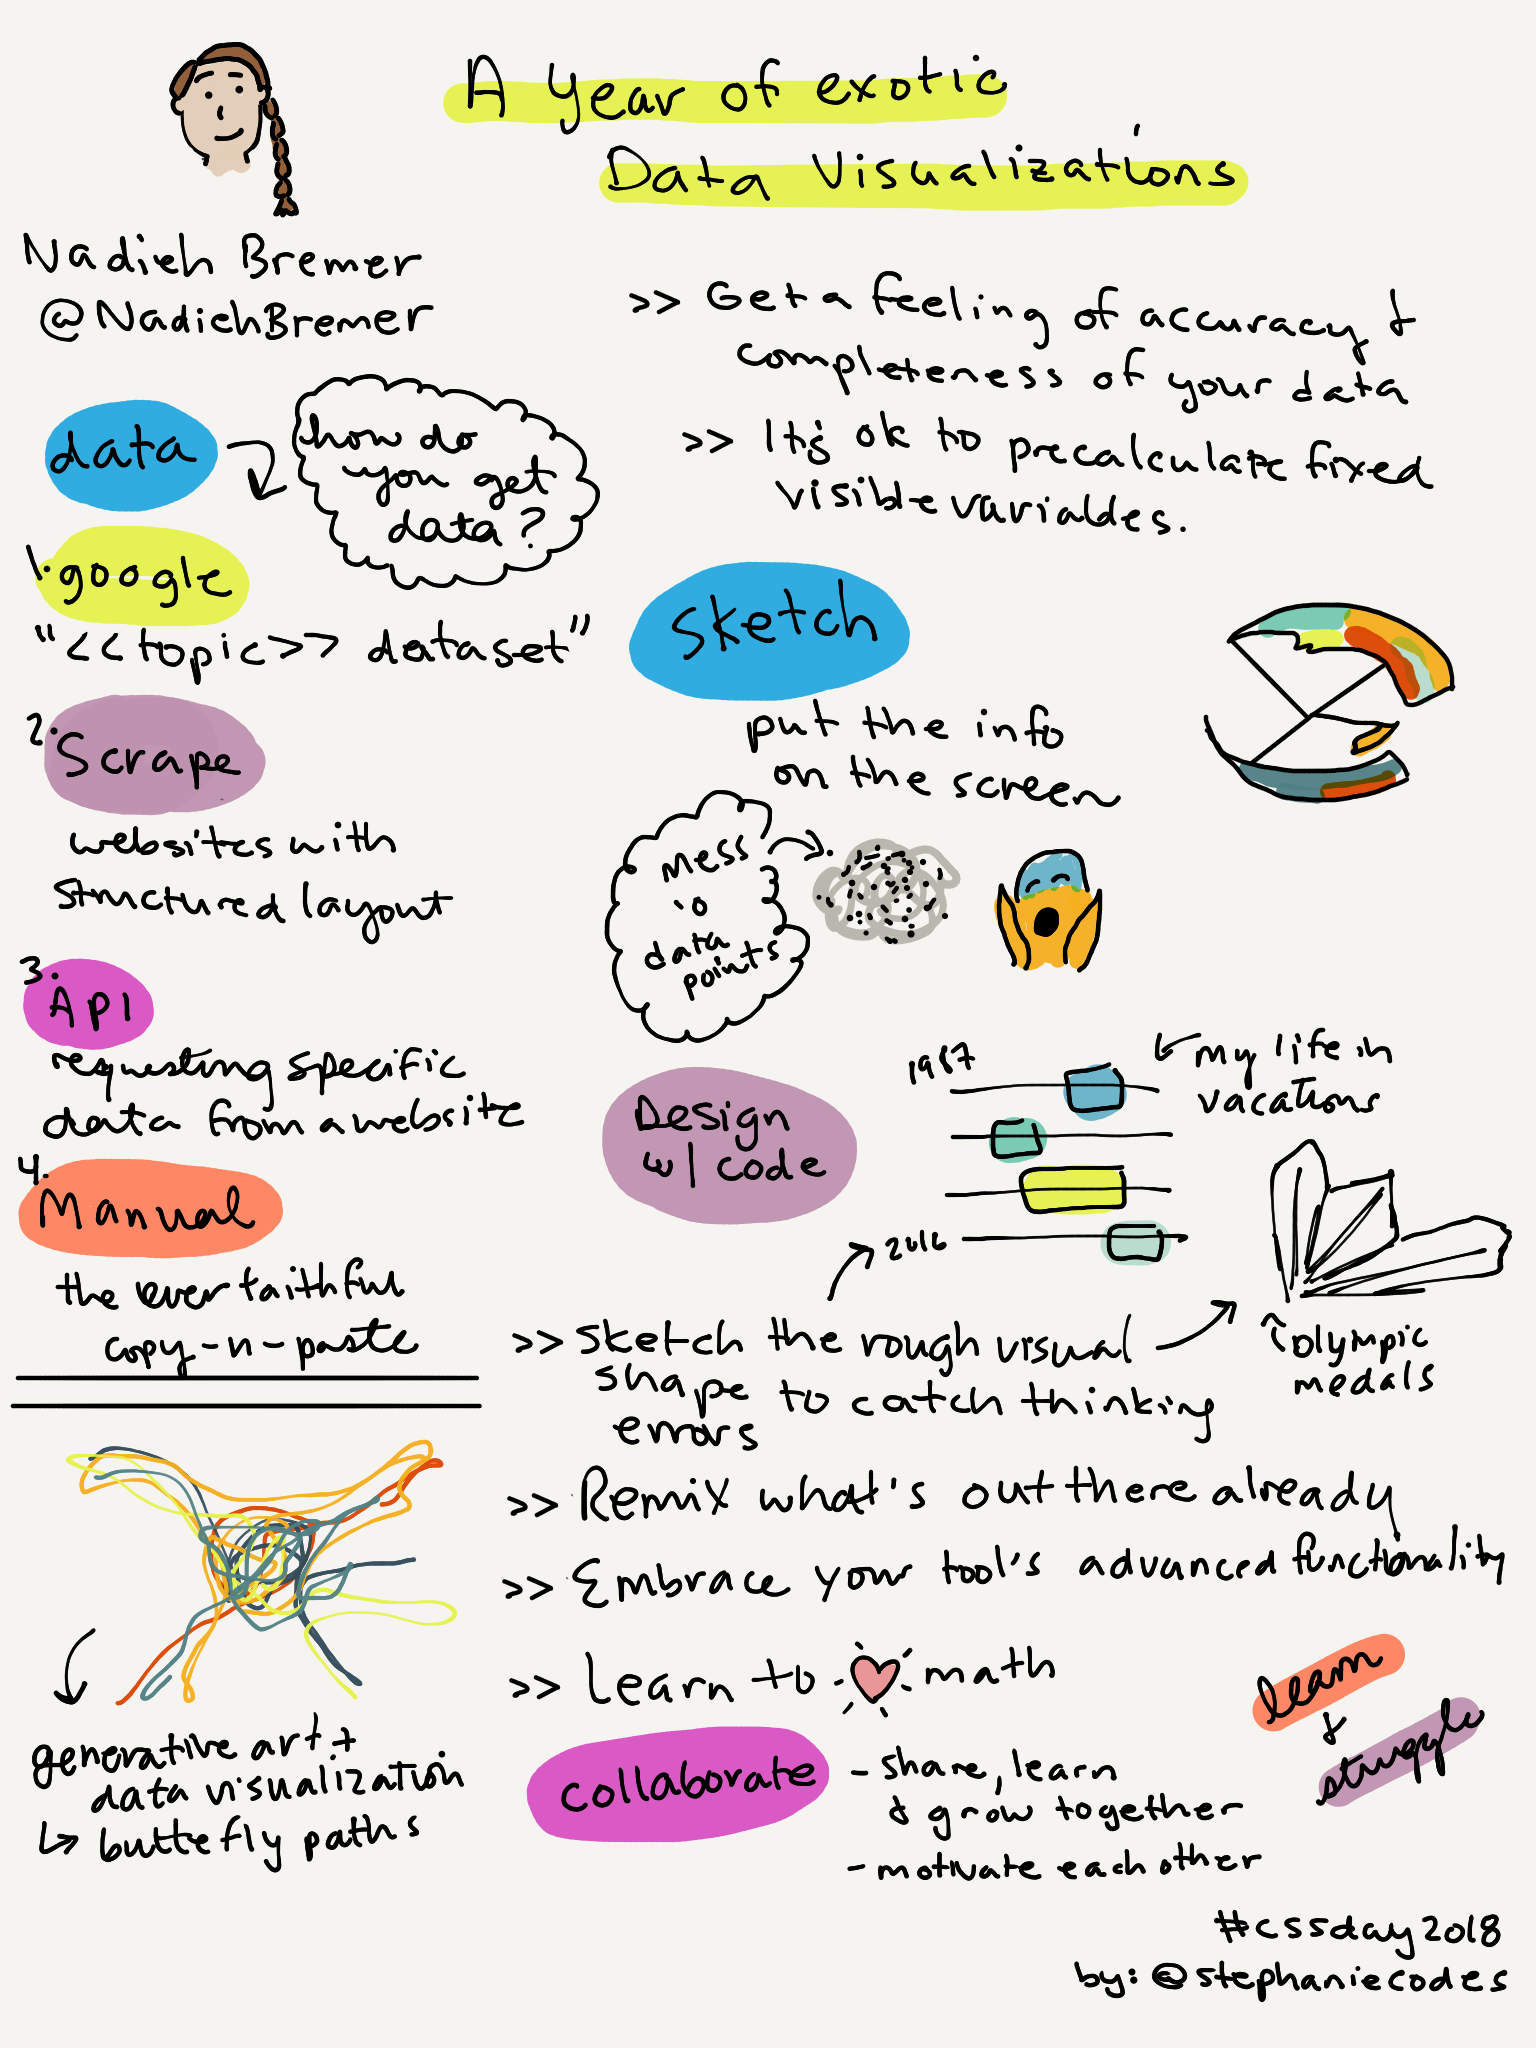 A Year of exotic
Data Visualizations
Nadieh Bremer
@NadiehBremer
data
how do
you get
data?
1. google
"<<topic>> dataset"
2. Scrape
websites with
structured layout
3. Api
requesting specific
data from a website
4. Manual
the ever faithful
copy-n-paste
generative art +
data visualization
butterfly paths
>> Get a feeling of accuracy &
completeness of your data
>> It's ok to precalculate fixed
visible variables.
Sketch
put the info
on the screen
mess
'o
data
points
Design
w/ code
1987
2016
my life in
vacations
olympic
medals
>> Sketch the rough visual
shape to catch thinking
errors
>> Remix what's out there already
>> Embrace your tool's advanced functionality
>> Learn to ♥ math
learn
&
struggle
collaborate
- share, learn
& grow together
- motivate each other
#cssday2018
by: @stephaniecodes